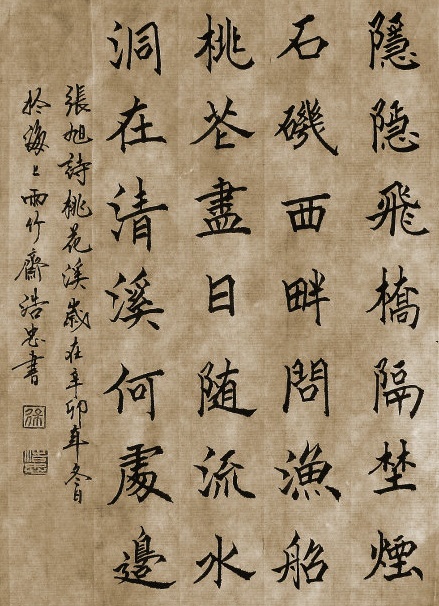 隱隱飛橋隔埜煙
石磯西畔問漁船
桃花盡日随流水
洞在清溪何處邊
張旭詩桃花溪歲在辛卯年冬日
於海上雨竹齋浩忠書